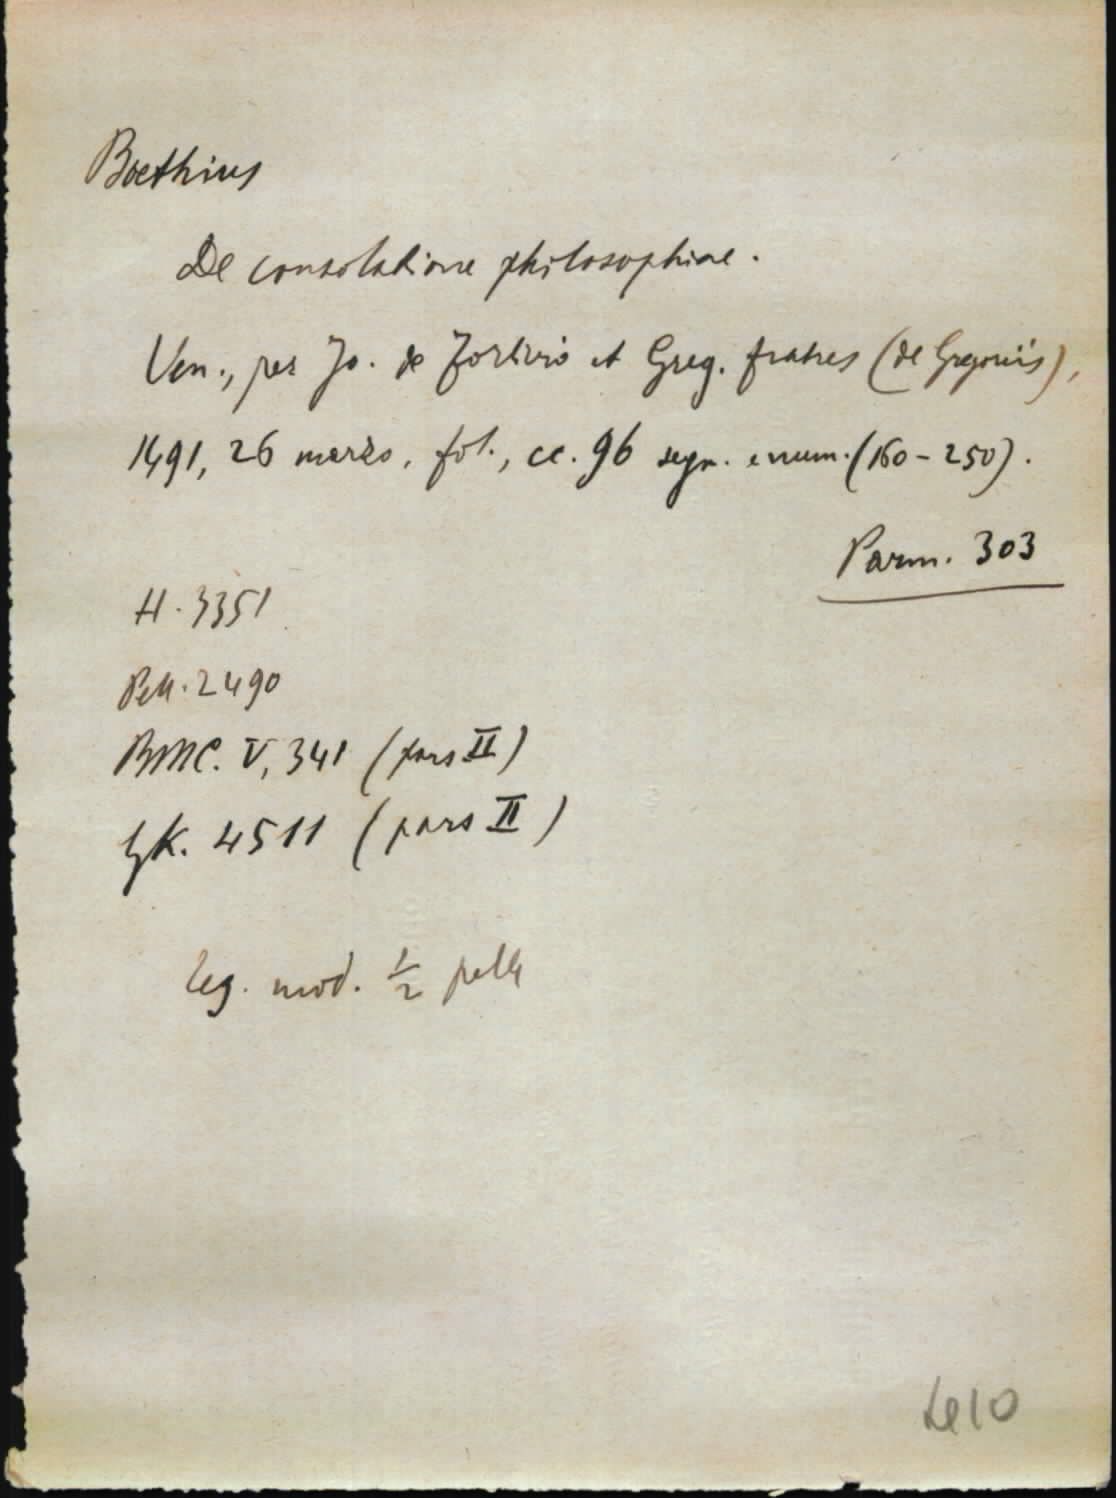 Boethius
De consolatione philosophiae.
Ven., per Jo. de Forlivio et Greg. fratres (de Gregoriis),
1491, 26 marzo, fol., cc. 96 segn. e num. (160-250).
Parm. 303
H. 3351
Pell. 2490
BMC. V, 341 (pars II)
GK. 4511 (pars II)
Leg. mod. 1/2 pelle